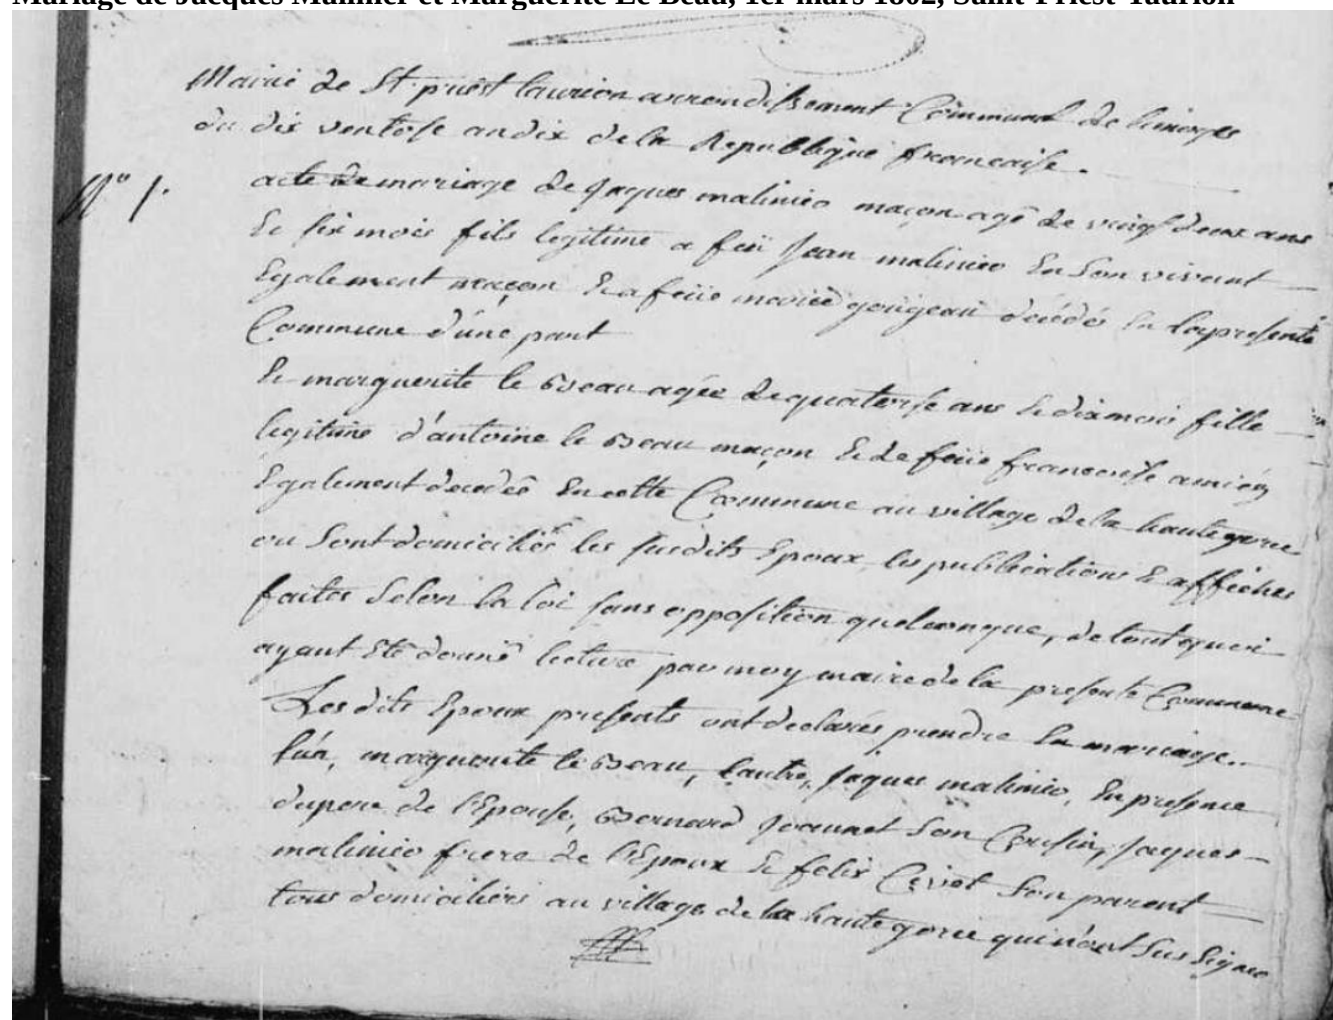 Mariage de Jacques Malinier et Marguerite Le Beau, 1er mars 1802, Saint-Priest-Taurion
Mairie de St. priest taurion arrondissement Communal de limoges
du dix ventose an dix de la Republique francaise.
N° 1. acte de mariage de Jaques malinieo maçon agé de vingt deux ans
Et six mois fils legitime a feü Jean malinieo En son vivant
Egalement maçon Et a feüe marie goügeau décédé En la presente
Commune d'une part
Et marguerite le Beau agée de quatorse ans Et dix mois fille
legitime d'antoine le Beau maçon Et de feüe francoise
Egalement decedeé En cette Commune au village de la haute gorce
ou sont domiciliés les susdits Epoux, les publications Et affiches
faites selon la loi sans opposition quelconque, de tout quoi
ayant été donné lecture par moy maire de la presente Commune
Les dits Epoux presents ont declarés prendre En mariage..
l'un, marguerite le Beau, l'autre, Jaques malinieo, En presence
du pere de l'Epouse, Bernard Joannet son Cousin, Jaques
malinieo frere de l'Epoux Et felix son parent
tous domiciliés au village de la haute gorce qui n'ont sus signer